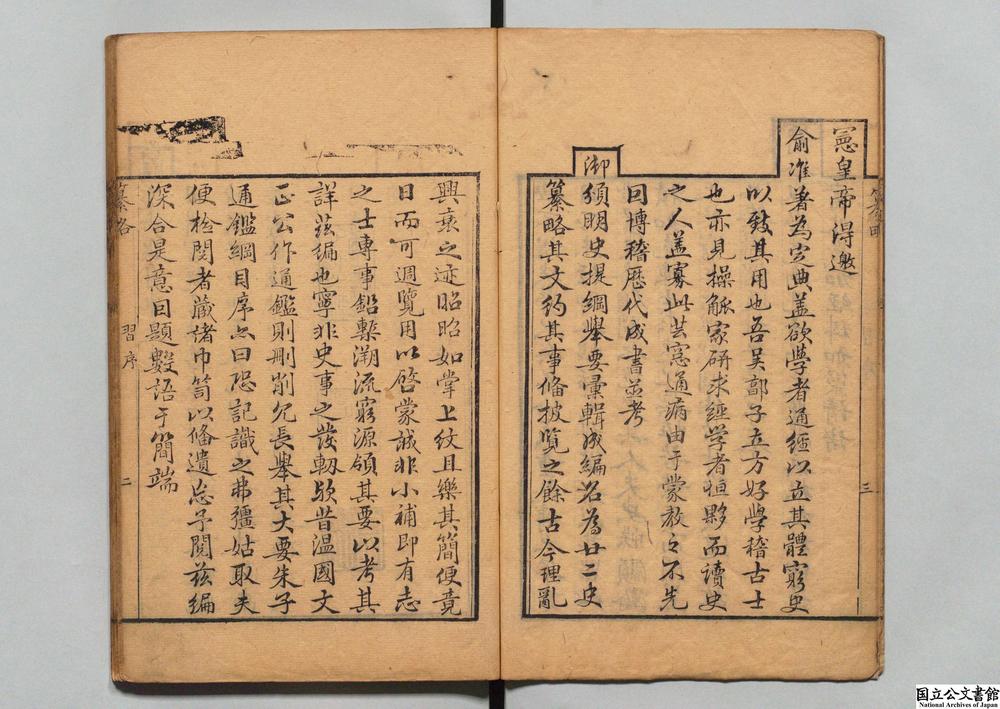 憲皇帝得邀
俞准著為定典蓋欲學者通經以立其體窮史
以致其用也吾吴郡子立方好學稽古士
也亦見操觚家研求經學者恒夥而讀史
之人盖寡此芸窓通病由于蒙教之不先
曰博稽歷代成書並考
御
頒明史提綱舉要彙輯成編名為廿二史
纂略其文約其事偹披覧之餘古今理亂
三
興衰之迹昭昭如掌上紋且樂其簡便竟
日而可週覧用以啓蒙誠非小補即有志
之士專事鉛槧溯流窮源領其要以考其
詳茲編也寧非史事之發軔歟昔温國文
正公作通鑑則刪削冗長舉其大要朱子
通鑑綱目序亦曰恐記識之弗彊姑取夫
便檢閱者藏諸巾笥以偹遺忘予閱茲編
深合是意因題數語于簡端
纂略
習序
二
国立公文書館
National Archives of Japan